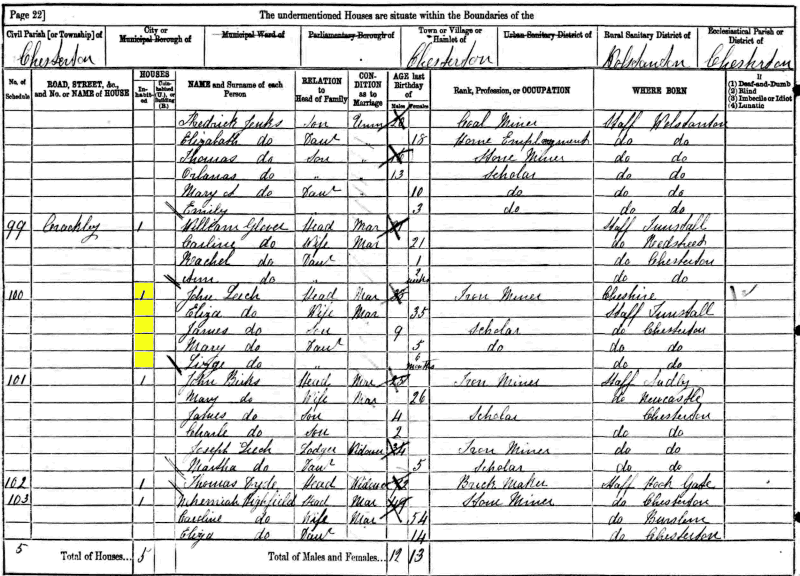 Page 22] The undermentioned Houses are situate within the Boundaries of the
Civil Parish [or Township] of Chesterton
City or Municipal Borough of
Municipal Ward of
Parliamentary Borough of
Town or Village or Hamlet of Chesterton
Urban Sanitary District of
Rural Sanitary District of Wolstanton
Ecclesiastical Parish or District of Chesterton
No. of Schedule ROAD, STREET, &c., and No. or NAME of HOUSE HOUSES In-habit-ed Unin-habited (U.), or Building (B.) NAME and Surname of each Person RELATION to Head of Family CON-DITION as to Marriage AGE last Birthday of Males Females Rank, Profession, or OCCUPATION WHERE BORN If (1) Deaf-and-Dumb (2) Blind (3) Imbecile or Idiot (4) Lunatic
Son Coal Miner Staff Wolstanton
Elizabeth do Daur " 18 Home Employment do do
Thomas do Son " Stone Miner do do
do " 13 Scholar do do
Mary A do Daur 10 do do do
Emily 3 do do do
99 Crackley 1 William Glover Head Mar Staff Tunstall
Carline do Wife Mar 21 do
Rachel do Daur 1 do Chesterton
Ann do " 2 weeks do do
100 1 John Leech Head Mar 35 Iron Miner Cheshire
Eliza do Wife Mar 35 Staff Tunstall
James do Son 9 Scholar do Chesterton
Mary do Daur 5 do do do
Lizze do " 6 months do do
101 1 John Birks Head Mar Iron Miner Staff Audley
Mary do Wife Mar 26 do Newcastle
James do Son 4 Scholar Chesterton
Charle do Son 2 do do
Joseph Leech Lodger Widower 34 Iron Miner do do
Martha do Daur 5 Scholar do do
102 1 Thomas Head Widower Brick Maker Staff Gate
103 1 Nehemiah Highfield Head Mar 49 Stone Miner do Chesterton
Caroline do Wife Mar 54 do Burslem
Eliza do Daur 14 do Chesterton
5 Total of Houses... 5 Total of Males and Females... 12 13